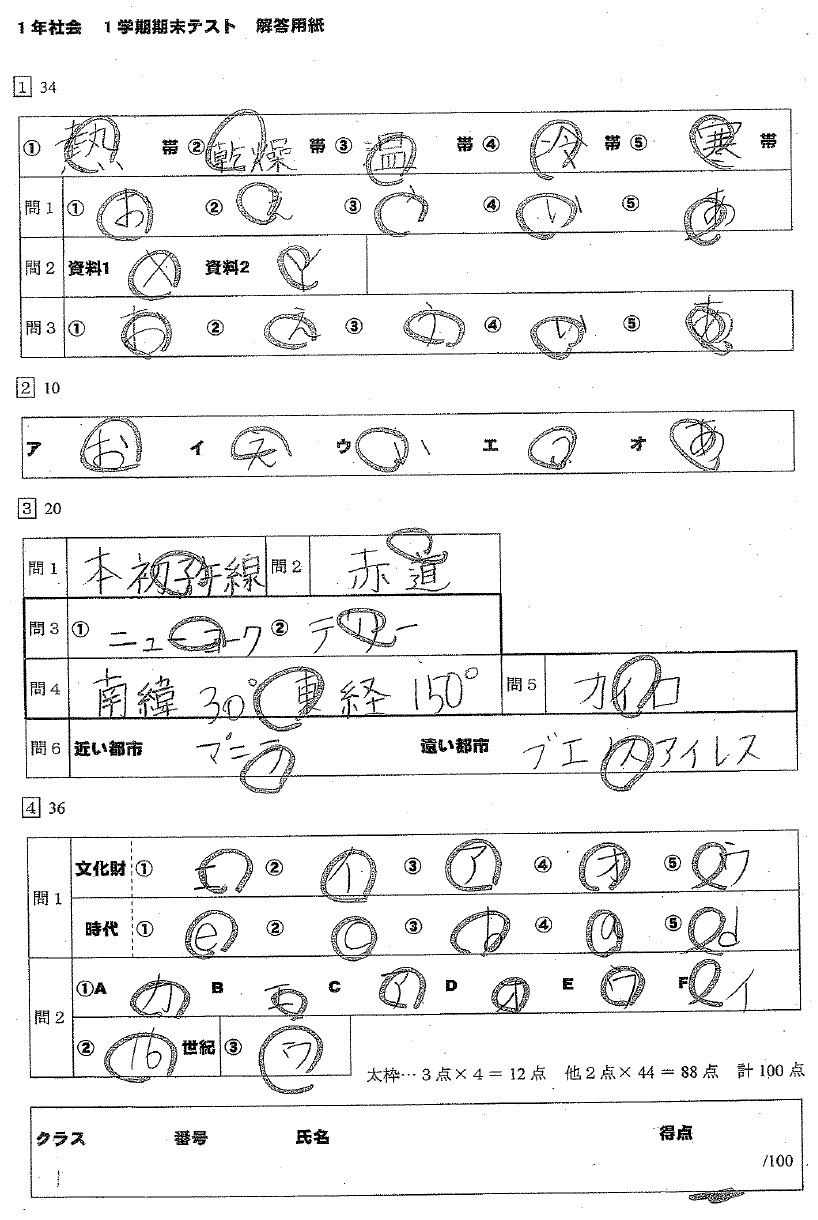 1年社会 1学期期末テスト 解答用紙
1 34
① 熱 帯 ② 乾燥 帯 ③ 温 帯 ④ 冷 帯 ⑤ 寒 帯
問1 ① お ② え ③ う ④ い ⑤ あ
問2 資料1 × 資料2
問3 ① お ② え ③ う ④ い ⑤ あ
2 10
ア お イ え ウ い エ う オ あ
3 20
問1 本初子午線 問2 赤道
問3 ① ニューヨーク ② デリー
問4 南緯 30° 東経 150° 問5 カイロ
問6 近い都市 マニラ 遠い都市 ブエノスアイレス
4 36
問1 文化財 ① エ ② イ ③ ア ④ オ ⑤ ウ
時代 ① e ② c ③ b ④ a ⑤ d
問2 ①A カ B エ C ア D オ E ウ F イ
② 16 世紀 ③ ウ
太枠…3点×4=12点 他2点×44=88点 計100点
クラス 番号 氏名 得点
1 /100